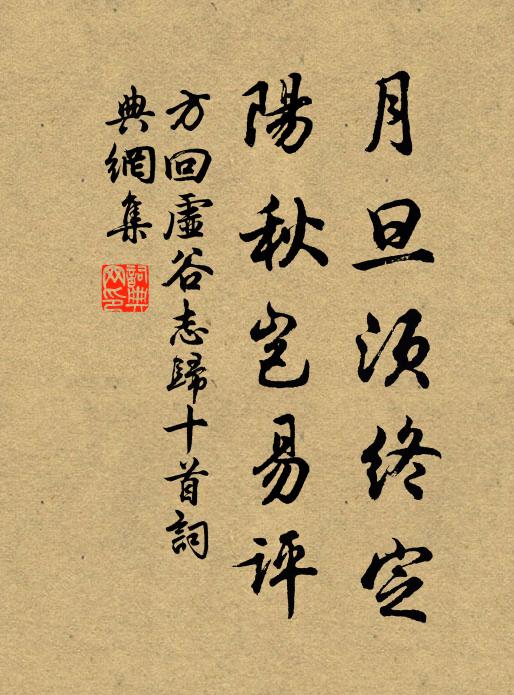 月旦須終定
陽秋豈易評
方回虛谷志歸十首詞
典網集
詞典網印